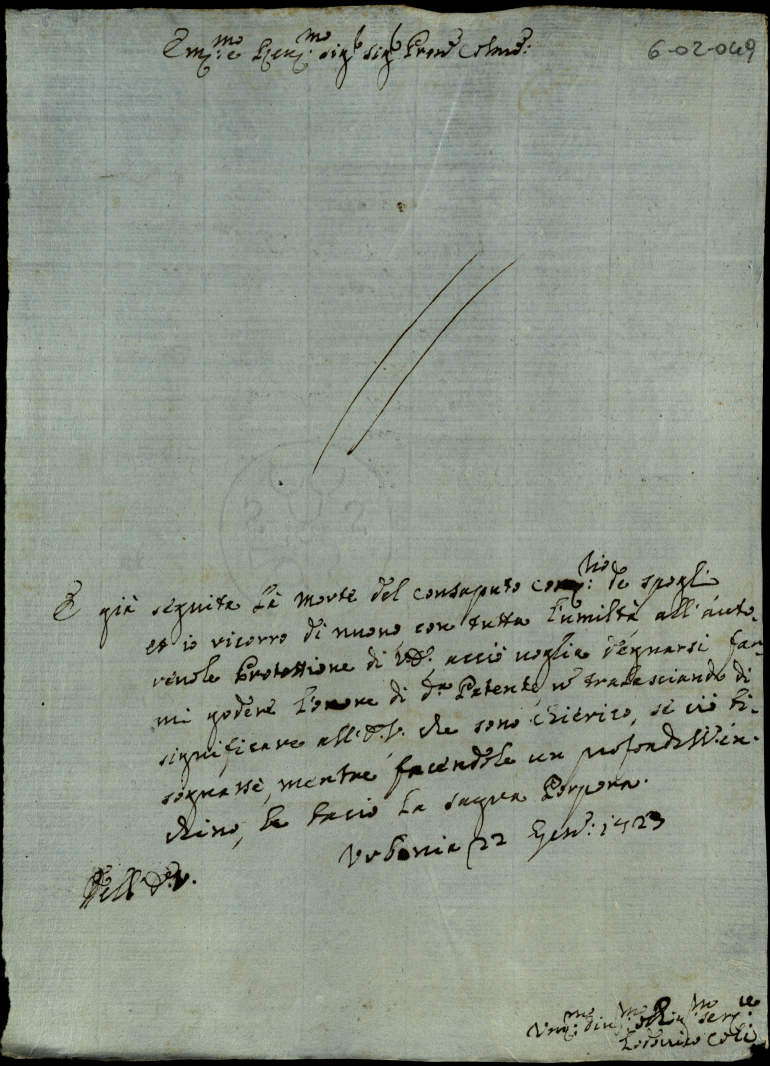 Em:mo e Rev:mo Sig.r Sig.r Pron Colmo:
6-02-049
È già seguita la morte del consaputo Comm:rio de spogli
et io ricorro di nuovo con tutta l'umiltà all'auto-
revole Protettione di V.E. acciò voglia degnarsi far-
mi godere l'onore di d.a Patente, n tralasciando di
significare all'E.V. che sono Chierico, se ciò bi-
sognasse, mentre facendole un profondiss: in-
chino, le bacio la sagra Porpora.
Urbania 22 Gen: 1723
Dell'E.V.
Um:mo Div:mo Oblig:mo Ser:re
Lodovico